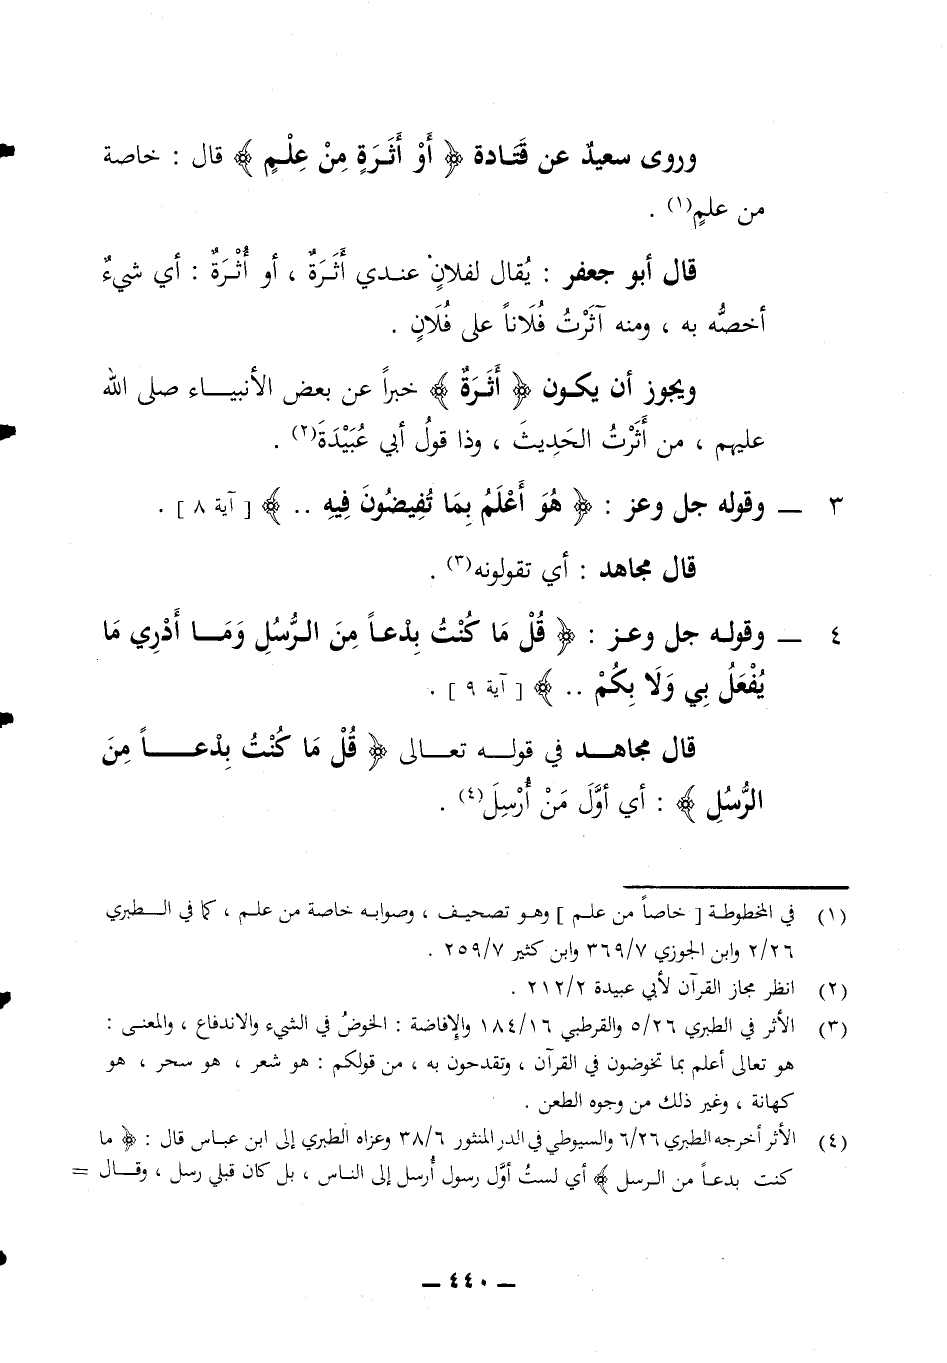 وروى سعيدٌ عن قَتَادة ﴿ أَوْ أَثَرَةٍ مِنْ عِلْمٍ ﴾ قال : خاصة
من علمٍ(١) .
قال أبو جعفر : يُقال لفلانٍ عندي أَثَرَةٌ ، أو أُثْرَةٌ : أي شيءٌ
أخصُّه به ، ومنه آثَرْتُ فُلَاناً على فُلَانٍ .
ويجوز أن يكون ﴿ أَثَرَةٌ ﴾ خبراً عن بعض الأنبياء صلى الله
عليهم ، من أَثَرْتُ الحَدِيثَ ، وذا قولُ أبي عُبَيْدَةَ(٢) .
٣ ــ وقوله جل وعز : ﴿ هُوَ أَعْلَمُ بِمَا تُفِيضُونَ فِيهِ .. ﴾ [ آية ٨ ] .
قال مجاهد : أي تقولونه(٣) .
٤ ــ وقوله جل وعز : ﴿ قُلْ مَا كُنْتُ بِدْعاً مِنَ الرُّسُلِ وَمَا أَدْرِي مَا
يُفْعَلُ بِي وَلَا بِكُمْ .. ﴾ [ آية ٩ ] .
قال مجاهد في قوله تعالى ﴿ قُلْ مَا كُنْتُ بِدْعاً مِنَ
الرُّسُلِ ﴾ : أي أوَّلَ مَنْ أُرْسِلَ(٤) .
(١) في المخطوطة [ خاصاً من علم ] وهو تصحيف ، وصوابه خاصة من علم ، كما في الطبري
٢/٢٦ وابن الجوزي ٣٦٩/٧ وابن كثير ٢٥٩/٧ .
(٢) انظر مجاز القرآن لأبي عبيدة ٢١٢/٢ .
(٣) الأثر في الطبري ٥/٢٦ والقرطبي ١٨٤/١٦ والإفاضة : الخوضُ في الشيء والاندفاع ، والمعنى :
هو تعالى أعلم بما تخوضون في القرآن ، وتقدحون به ، من قولكم : هو شعر ، هو سحر ، هو
كهانة ، وغير ذلك من وجوه الطعن .
(٤) الأثر أخرجه الطبري ٦/٢٦ والسيوطي في الدر المنثور ٣٨/٦ وعزاه الطبري إلى ابن عباس قال : ﴿ ما
كنت بدعاً من الرسل ﴾ أي لستُ أوَّل رسول أرسل إلى الناس ، بل كان قبلي رسل ، وقال =
ــ ٤٤٠ ــ